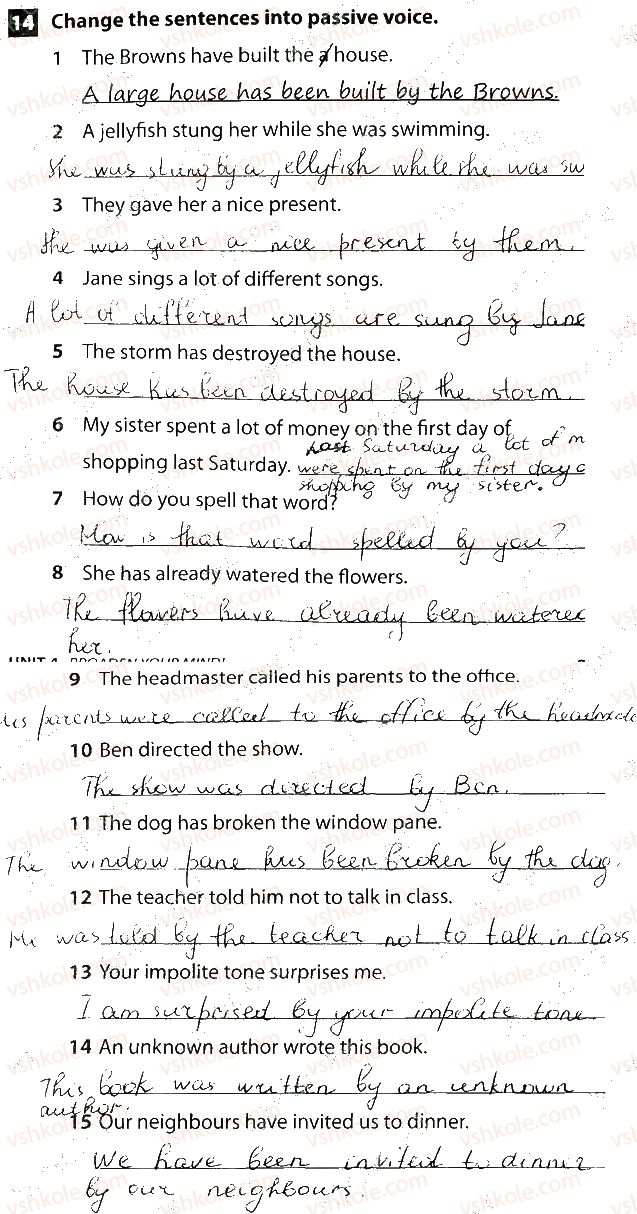 14 Change the sentences into passive voice.
1 The Browns have built the house.
A large house has been built by the Browns.
2 A jellyfish stung her while she was swimming.
She was stung by a jellyfish while she was sw
3 They gave her a nice present.
She was given a nice present by them.
4 Jane sings a lot of different songs.
A lot of different songs are sung by Jane
5 The storm has destroyed the house.
The house has been destroyed by the storm.
6 My sister spent a lot of money on the first day of
Last Saturday a lot of m
shopping last Saturday. were spent on the first day o
shopping by my sister.
7 How do you spell that word?
How is that word spelled by you?
8 She has already watered the flowers.
The flowers have already been watered
her.
UNIT 4 BROADEN YOUR MIND!
9 The headmaster called his parents to the office.
his parents were called to the office by the headmaste
10 Ben directed the show.
The show was directed by Ben.
11 The dog has broken the window pane.
The window pane has been broken by the dog.
12 The teacher told him not to talk in class.
He was told by the teacher not to talk in class.
13 Your impolite tone surprises me.
I am surprised by your impolite tone
14 An unknown author wrote this book.
This book was written by an unknown
author.
15 Our neighbours have invited us to dinner.
We have been invited to dinner
by our neighbours.